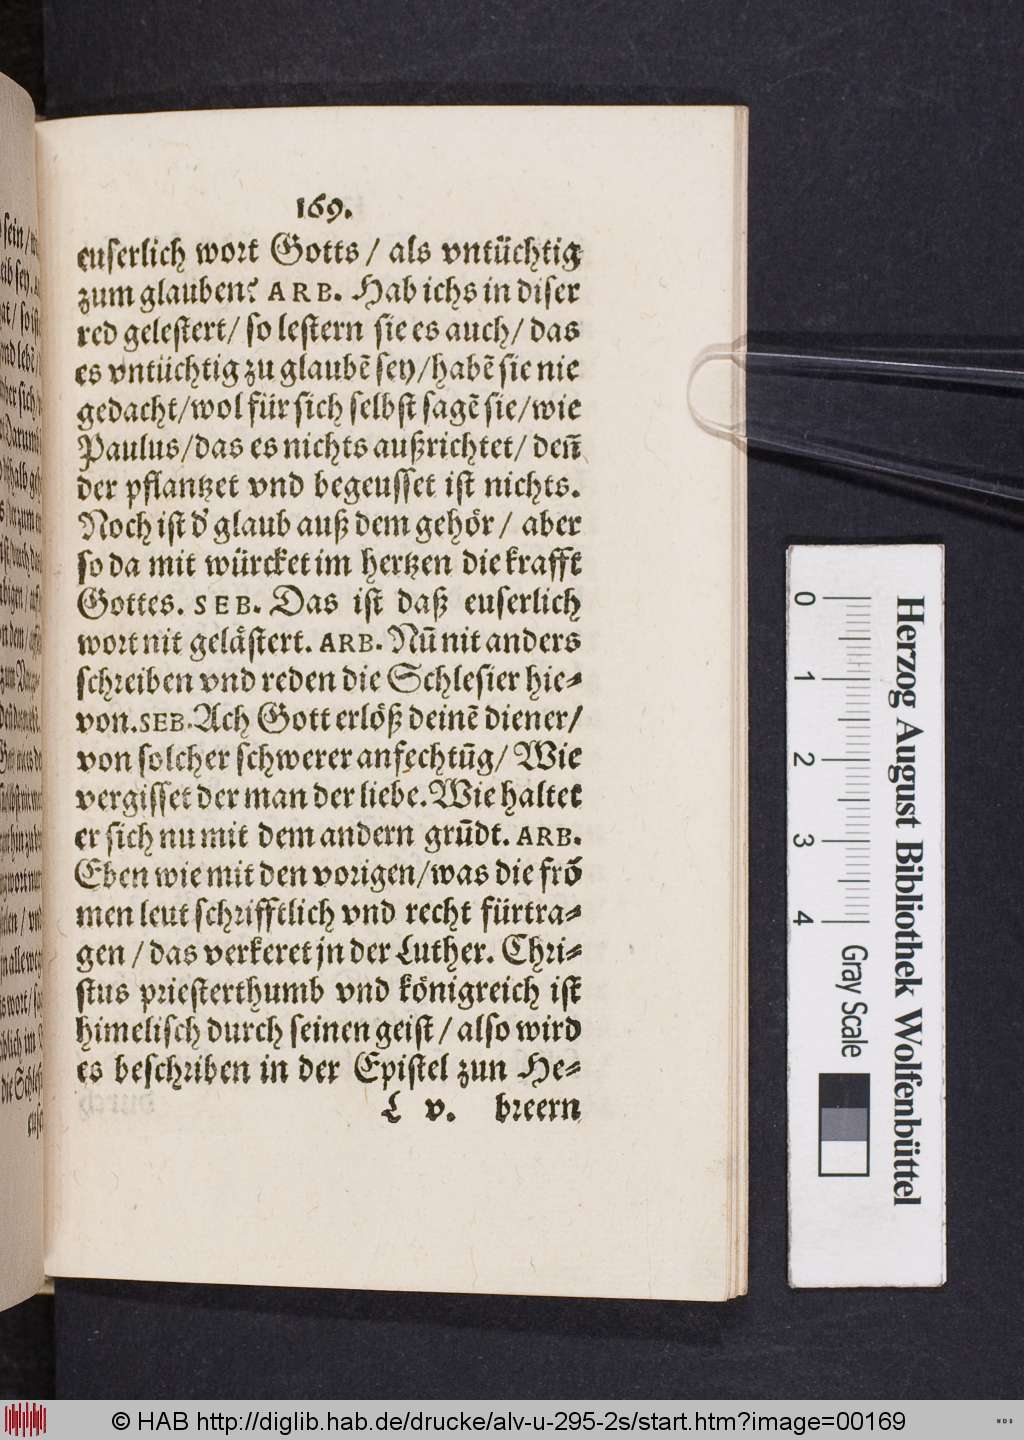 169.
euserlich wort Gotts / als vntüchtig
zum glauben? ARB. Hab ichs in diser
red gelestert/ so lestern sie es auch/ das
es vntüchtig zu glaubē sey/habē sie nie
gedacht/wol für sich selbst sagē sie/wie
Paulus/das es nichts außrichtet/ deñ
der pflantzet vnd begeusset ist nichts.
Noch ist d' glaub auß dem gehör / aber
so da mit würcket im hertzen die krafft
Gottes. SEB. Das ist daß euserlich
wort nit gelästert. ARB. Nū nit anders
schreiben vnd reden die Schlesier hie-
von. SEB. Ach Gott erlöß deinē diener/
von solcher schwerer anfechtūg/ Wie
vergisset der man der liebe. Wie haltet
er sich nu mit dem andern grūdt. ARB.
Eben wie mit den vorigen/was die frō
men leut schrifftlich vnd recht fürtra-
gen / das verkeret jn der Luther. Chri-
stus priesterthumb vnd königreich ist
himelisch durch seinen geist / also wird
es beschriben in der Epistel zun He-
L v. breern
0 1 2 3 4
Gray Scale
Herzog August Bibliothek Wolfenbüttel
© HAB http://diglib.hab.de/drucke/alv-u-295-2s/start.htm?image=00169